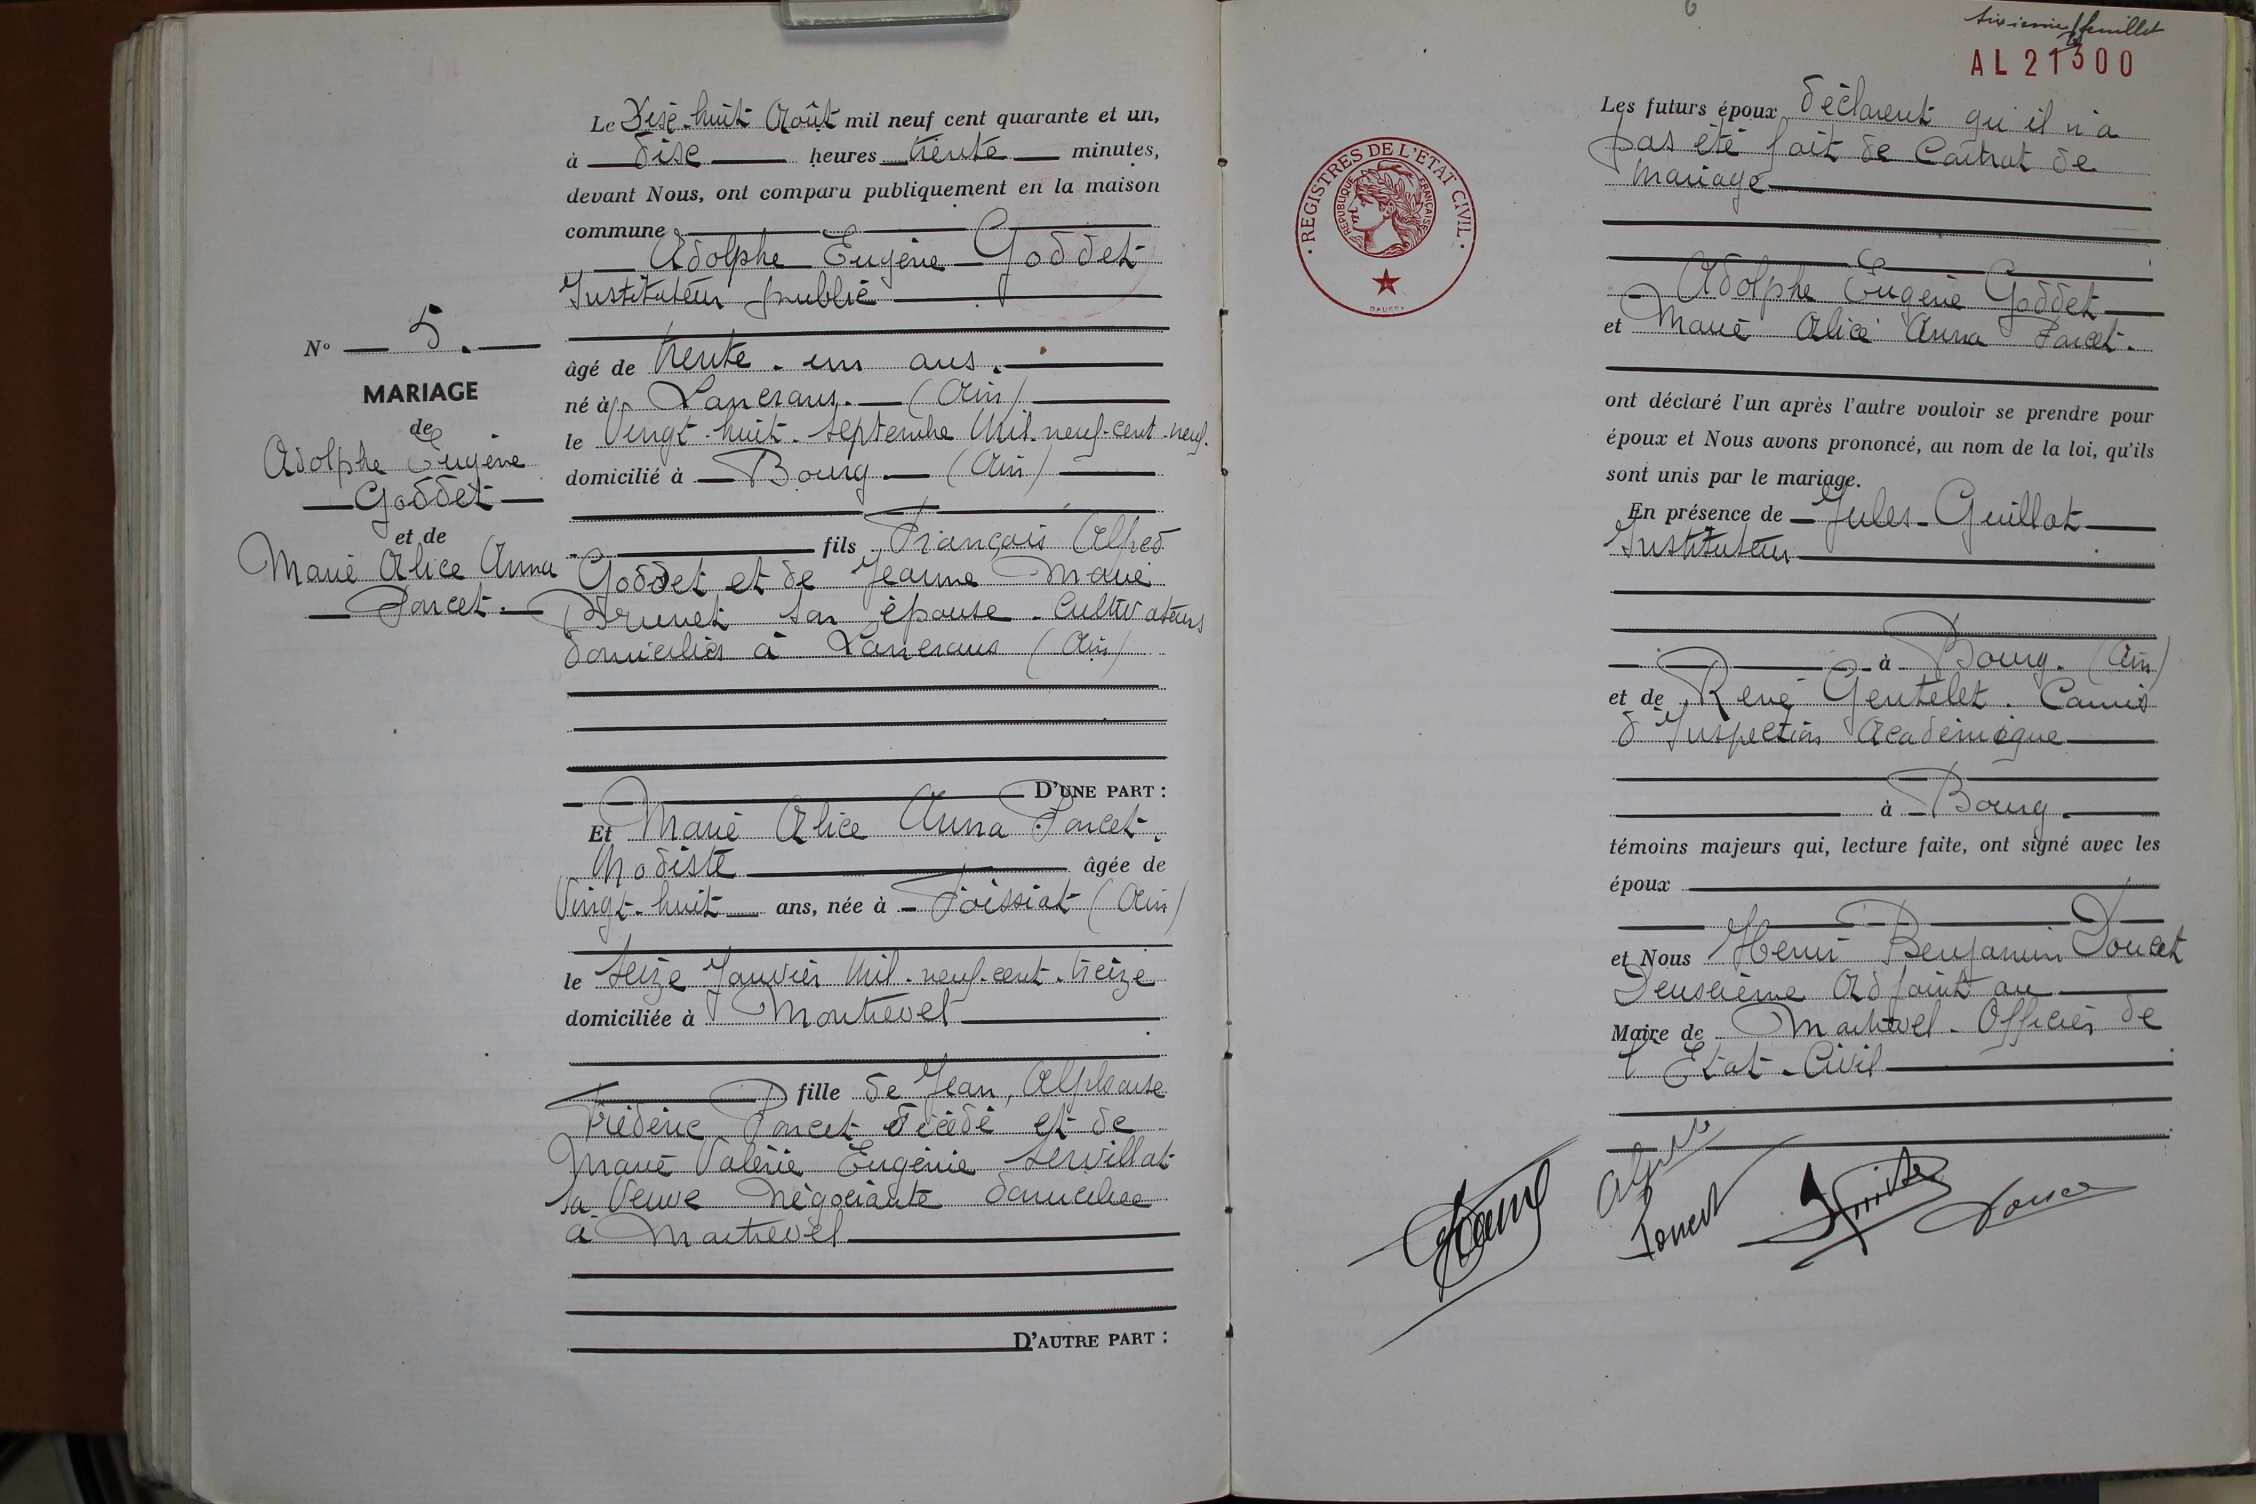 Le Dix-huit Août mil neuf cent quarante et un,
à dix heures trente minutes,
devant Nous, ont comparu publiquement en la maison
commune
Adolphe Eugène Goddet
Instituteur public
âgé de trente-un ans.
né à Lancrans. (Ain)
le Vingt-huit-septembre Mil-neuf-cent-neuf.
domicilié à Bourg (Ain)
fils François Alfred
Goddet et de Jeanne Marie
Brunet son épouse. Cultivateurs
domiciliés à Lancrans (Ain)
D'UNE PART :
Et Marie Alice Anna Poncet.
Modiste âgée de
Vingt-huit ans, née à Foissiat (Ain)
le seize Janvier Mil-neuf-cent-treize
domiciliée à Montrevel
fille de Jean, Alphonse
Frédéric Poncet décédé et de
Marie Valérie Eugénie Servillat
sa Veuve Négociante domiciliée
à Montrevel
D'AUTRE PART :
N° 5.
MARIAGE
de
Adolphe Eugène
Goddet
et de
Marie Alice Anna
Poncet.
6
sixième feuillet
AL 21300
REGISTRES DE L'ETAT CIVIL
REPUBLIQUE FRANÇAISE
Les futurs époux déclarent qu'il n'a
pas été fait de Contrat de
Mariage
Adolphe Eugène Goddet
et Marie Alice Anna Poncet.
ont déclaré l'un après l'autre vouloir se prendre pour
époux et Nous avons prononcé, au nom de la loi, qu'ils
sont unis par le mariage.
En présence de Jules Guillot
Instituteur
à Bourg. (Ain)
et de René Gentelet. Commis
d'Inspection Académique
à Bourg.
témoins majeurs qui, lecture faite, ont signé avec les
époux
et Nous Henri Benjamin Doucet
Deuxième Adjoint au
Maire de Montrevel. Officier de
l'Etat-Civil
Poncet